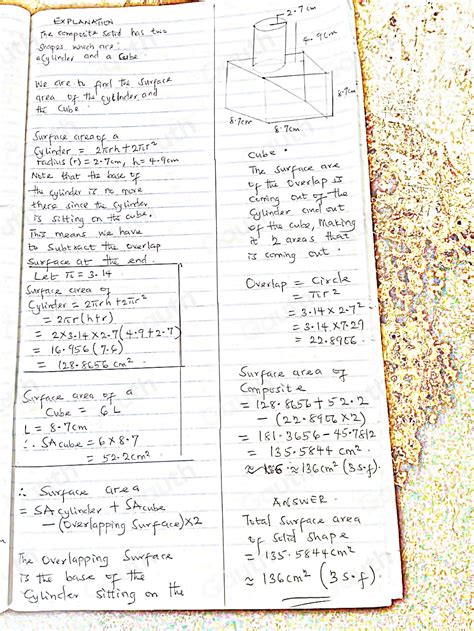 EXPLANATION
The composite solid has two
shapes which are:
a cylinder and a cube
We are to find the surface
area of the cylinder and
the cube.
Surface area of a
cylinder = 2πrh + 2πr²
radius (r) = 2.7cm, h = 4.9cm
Note that the base of
the cylinder is no more
there since the cylinder
is sitting on the cube.
This means we have
to subtract the overlap
surface at the end.
Let π = 3.14
Surface area of
Cylinder = 2πrh + 2πr²
= 2πr(h+r)
= 2×3.14×2.7(4.9+2.7)
= 16.956(7.6)
= 128.8656 cm²
Surface area of a
Cube = 6L
L = 8.7cm
∴ SAcube = 6×8.7
= 52.2cm²
∴ Surface area
= SAcylinder + SAcube
- (Overlapping Surface)×2
The Overlapping Surface
is the base of the
Cylinder sitting on the
2.7cm
4.9cm
8.7cm
8.7cm
8.7cm
Cube.
The surface are
of the overlap is
coming out of the
cylinder and out
of the cube, making
it 2 areas that
is coming out.
Overlap = Circle
= πr²
= 3.14×2.7²
= 3.14×7.29
= 22.8906.
Surface area of
Composite
= 128.8656 + 52.2
- (22.8906×2)
= 181.3656 - 45.7812
= 135.5844 cm²
≈ 136cm² (3s.f).
ANSWER.
Total Surface area
of solid shape
= 135.5844cm²
≈ 136cm² (3s.f).